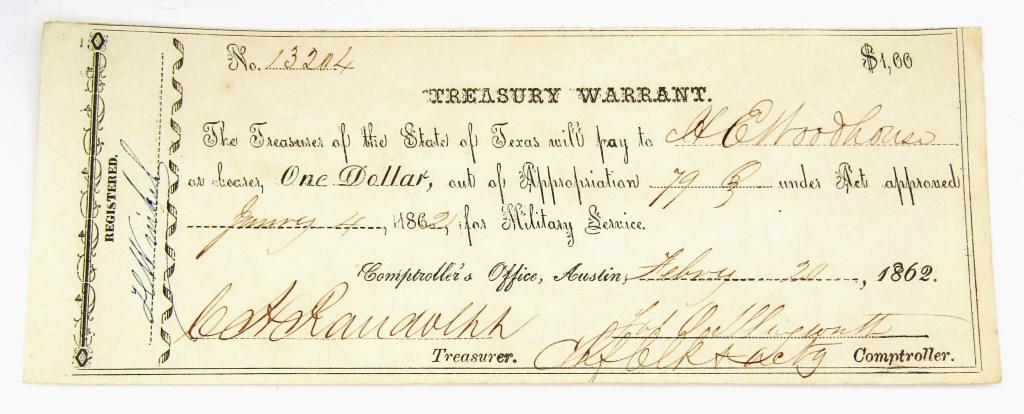 No. 13204 $1,00
TREASURY WARRANT.
The Treasurer of the State of Texas will pay to H E Woodhouse
or bearer, One Dollar, out of Appropriation 79 under Act approved
4, 1862, for Military Service.
Comptroller's Office, Austin, Febry 20, 1862.
C H Randolph
Treasurer. Ch f Clk & actg Comptroller.
REGISTERED.